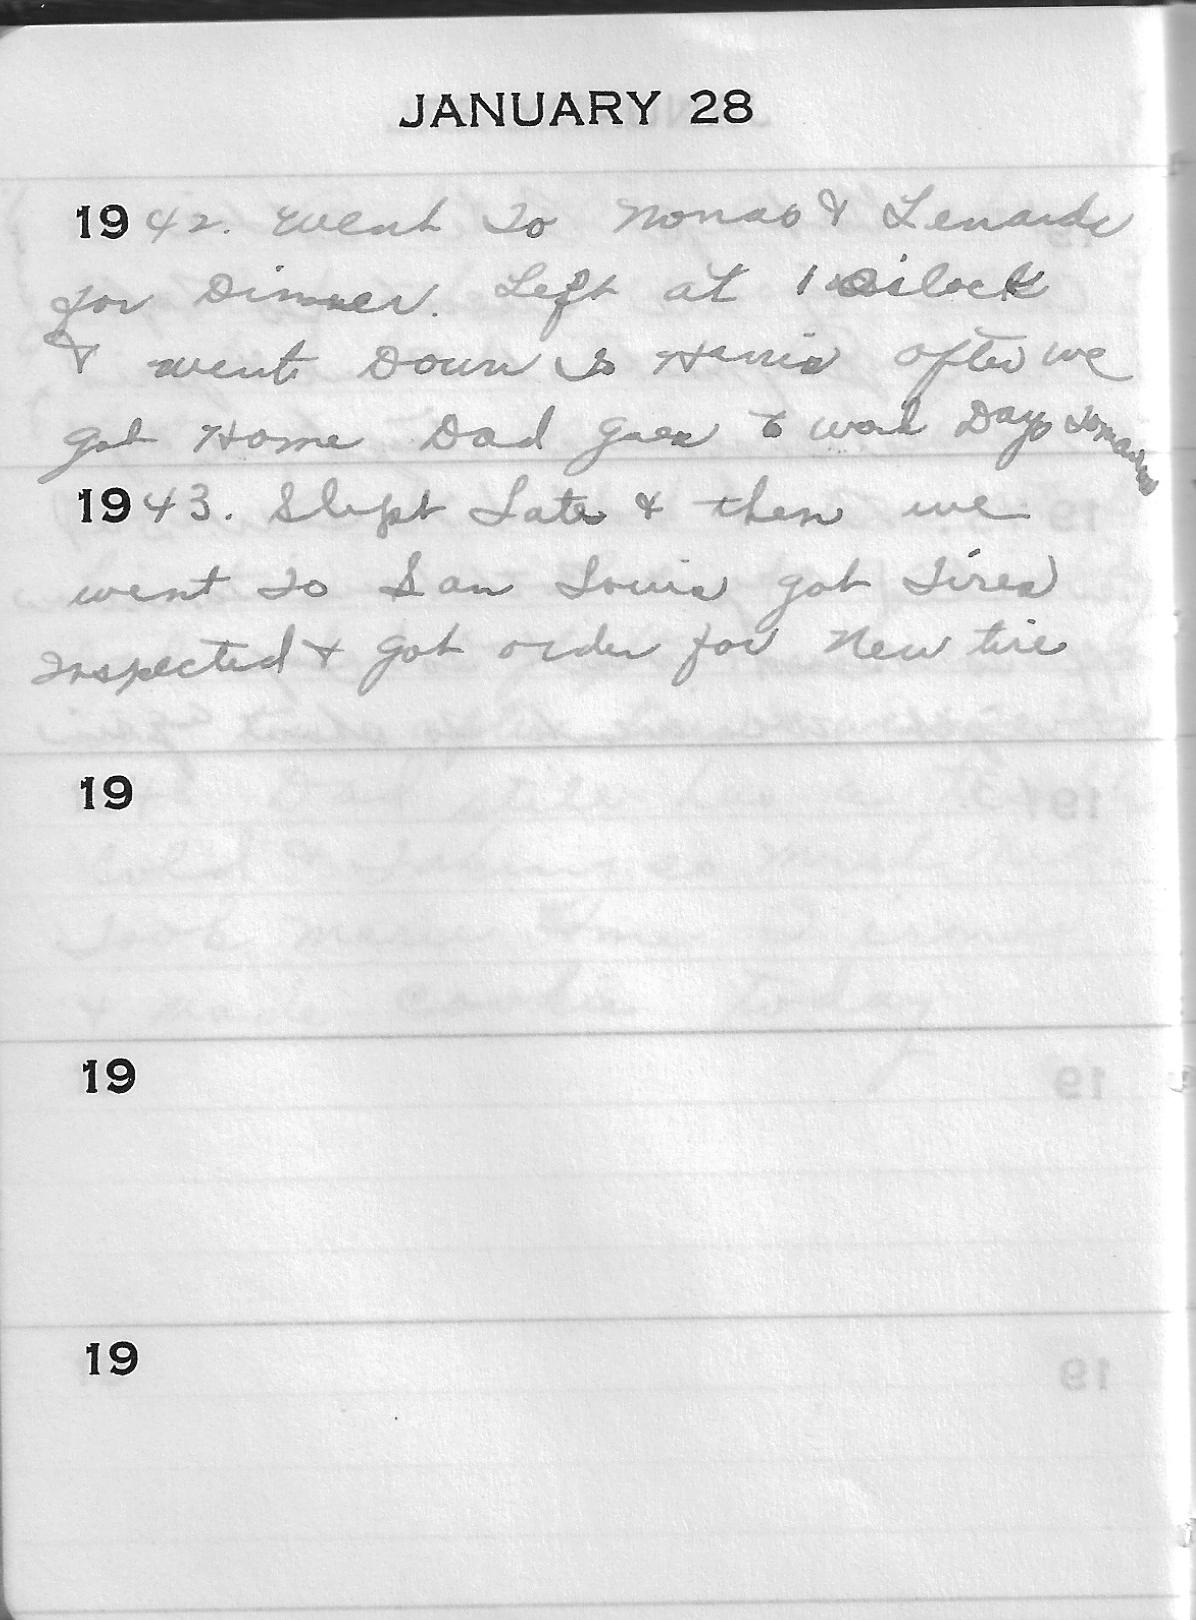 JANUARY 28
1942. Went To Nonas & Lenards
for Dinner. Left at 1 Oclock
& went Down to after we
got Home Dad goes to work Days Tomorrow
1943. Slept Late & then we
went to San Louis got Tires
Inspected & got order for New tire
19
19
19